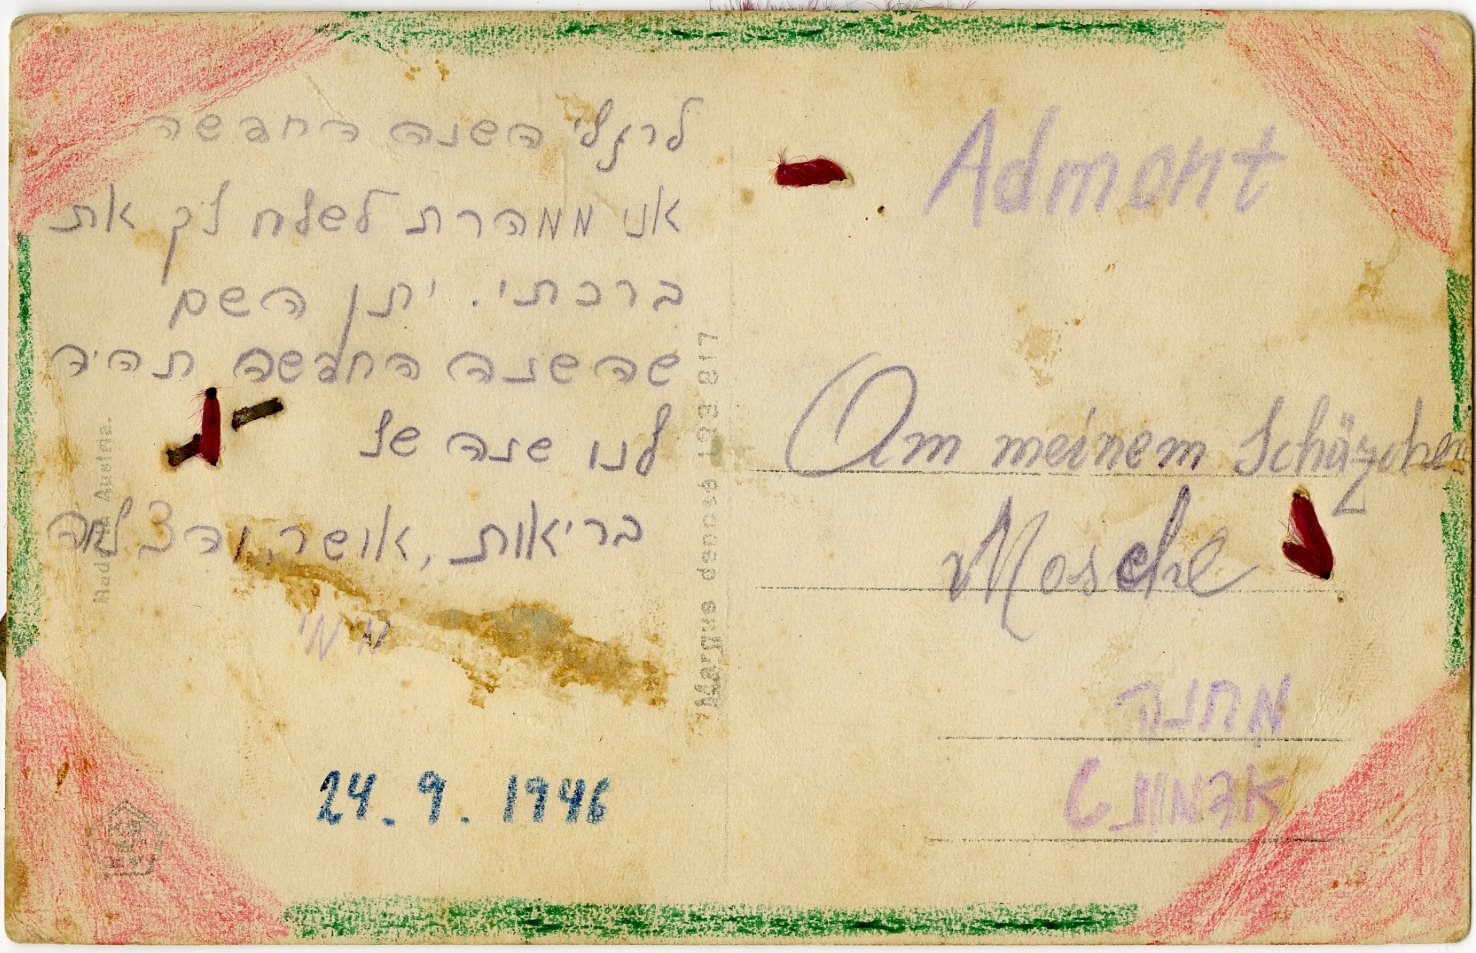 לרגלי השנה החדשה
אני ממהרת לשלח לך את
ברכתי. יתן השם
שהשנה החדשה תהיה
לנו שנה של
בריאות, אושר, והצלחה
מימי
24. 9. 1946
Made in Austria.
Marque deposé 193 817
Admont
Am meinem Schäzchen
Mosche
מחנה
אדמונט